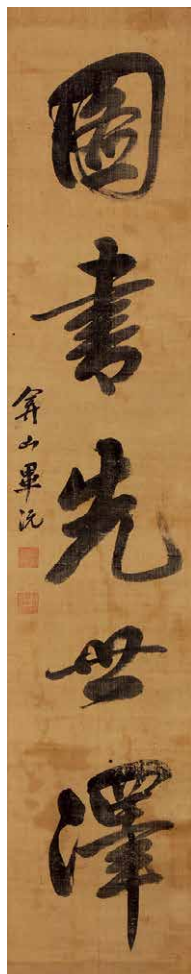 圖書先世澤
弇山畢沅